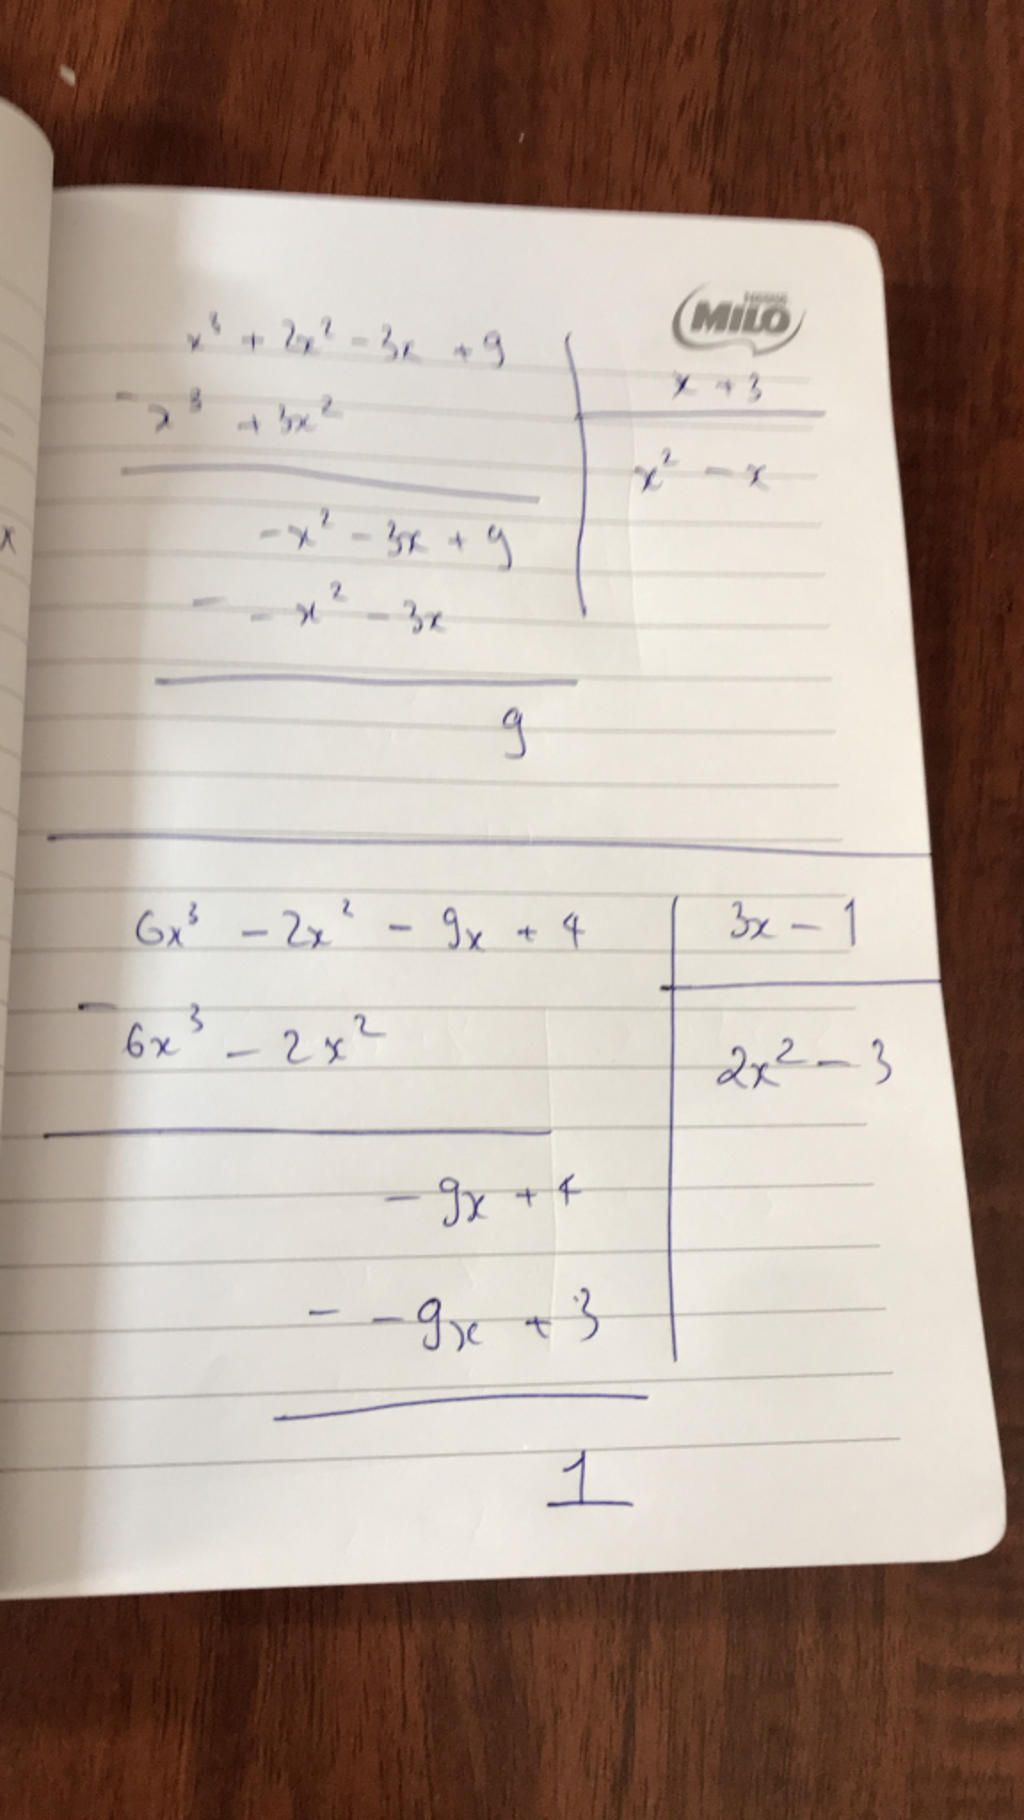 Nestlé
MILO
x³ + 2x² - 3x + 9
x + 3
- x³ + 3x²
x² - x
-x² - 3x + 9
- -x² - 3x
9
6x³ - 2x² - 9x + 4
3x - 1
- 6x³ - 2x²
2x² - 3
-9x + 4
- -9x + 3
1
x